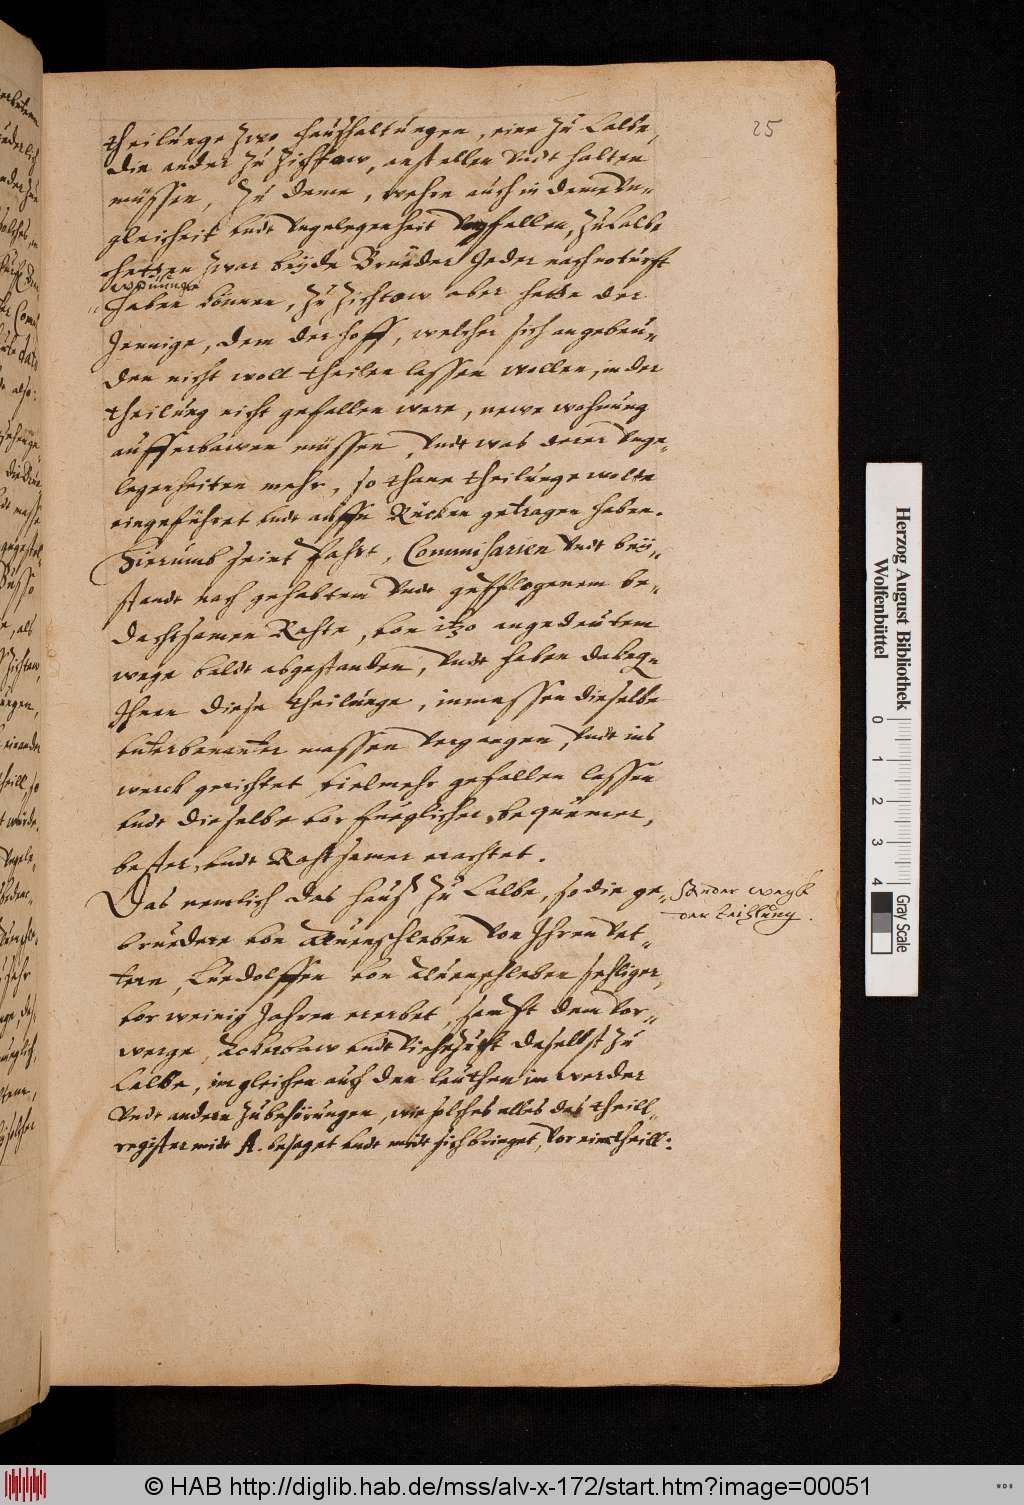 25
theilunge zwo haushaltungen, eine zu Calbe,
die ander zu Zichtow, anstellen vndt halten
müssen, zu deme, wehre auch in deme vn-
gleicheit vndt vngelegenheit vorfallen, zu Calbe
hetten zwar beyde Brueder Jeder nach noturft
wonunge
haben können, zu Zichtow aber hette der
Jennige, dem der hoff, welcher sich an gebeu-
den nicht woll theilen lassen wollen, in der
theilung nicht gefallen were, newe wohnung
aufferbawen müssen, vndt was derer vnge-
legenheiten mehr, so thane theilunge wolte
eingeführet vndt auffn Rücken getragen haben.
Hierumb seint Commissarien vndt bey-
standt nach gehabtem vndt gepflogenem be-
dachtsamen Rahte, von itzo angedeutem
wege baldt abgestanden, vndt haben dakegen
Ihnen diese theilunge, inmassen dieselbe
vnterbenanter massen vorgangen, vndt ins
werck gerichtet vielmehr gefallen lassen
vndt dieselbe vor fueglicher, bequemer,
bester, vndt Rahtsamer erachtet.
Das nemlich das hauß zu Calbe, so die ge-
Sonder wegk
der theilung.
bruedere von Aluenschleben von Ihren Vet-
tern, Luedolffen von Aluenschleben sehliger,
vor weinig Jahren ererbet, sampt dem vor-
werge, Ackerbaw vndt Viehezucht daselbst zu
Calbe, imgleichen auch den leuthen im werder
vndt andern zubehörungen, wie solches alles das theill-
register midt A. besaget vndt midt sich bringet, vor ein theill:
Herzog August Bibliothek
Wolfenbüttel
0 1 2 3 4
Gray Scale
© HAB http://diglib.hab.de/mss/alv-x-172/start.htm?image=00051